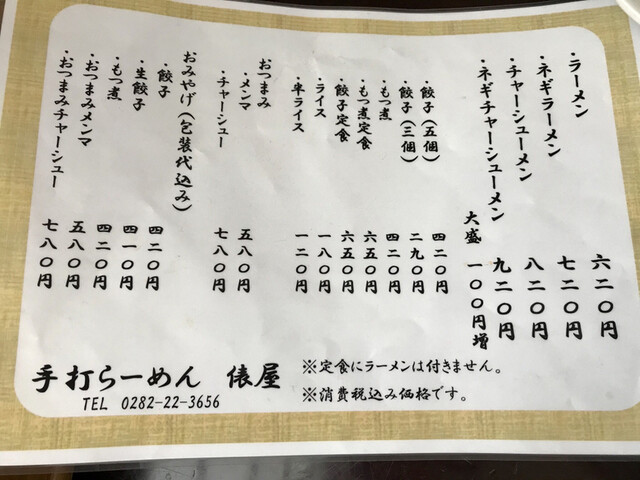 ・ラーメン 六二〇円
・ネギラーメン 七二〇円
・チャーシューメン 八二〇円
・ネギチャーシューメン 九二〇円
大盛 一〇〇円増
・餃子(五個) 四二〇円
・餃子(三個) 二九〇円
・もつ煮 四二〇円
・もつ煮定食 六五〇円
・餃子定食 六五〇円
・ライス 一八〇円
・半ライス 一二〇円
おつまみ
・メンマ 五八〇円
・チャーシュー 七八〇円
おみやげ(包装代込み)
・餃子 四二〇円
・生餃子 四一〇円
・もつ煮 四二〇円
・おつまみメンマ 五八〇円
・おつまみチャーシュー 七八〇円
※定食にラーメンは付きません。
※消費税込み価格です。
手打らーめん 俵屋
TEL 0282-22-3656